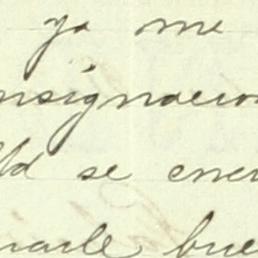 ya me
nsignacio
Vd se enc
rarle bue